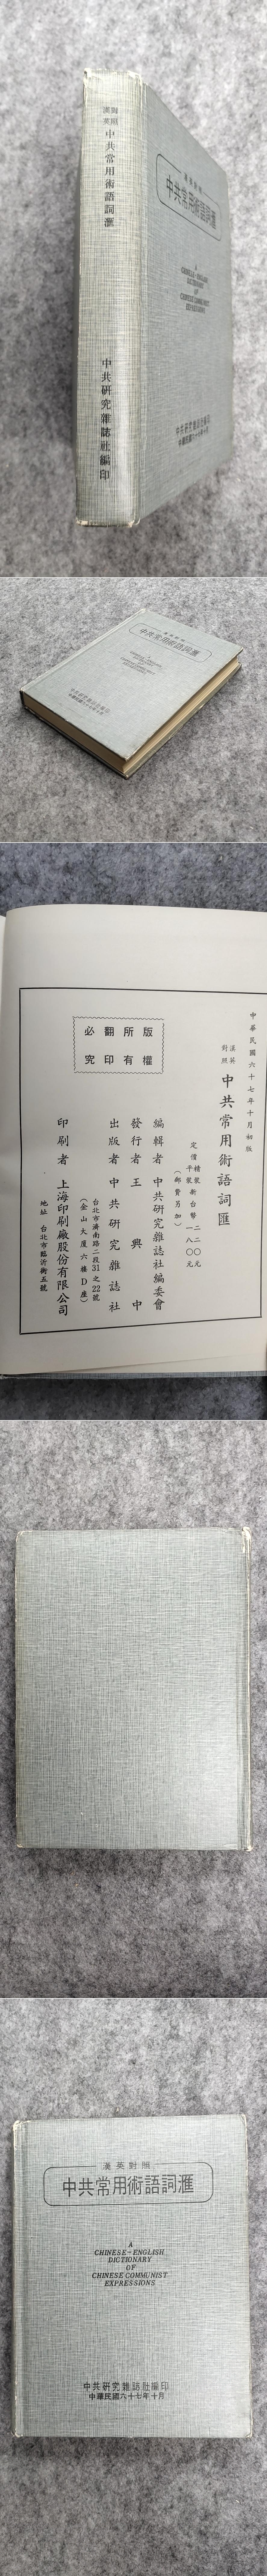 漢英對照
中共常用術語詞滙
中共研究雜誌社編印
漢英對照
中共常用術語詞滙
CHINESE-ENGLISH
DICTIONARY
OF
CHINESE COMMUNIST
EXPRESSIONS
中共研究雜誌社編印
中華民國六十七年十月
中共常用術語詞滙
中華民國六十七年十月初版
漢英對照
中共常用術語詞匯
定價 精裝 新台幣 二二〇元
平裝 一八〇元
(郵費另加)
編輯者 中共研究雜誌社編委會
發行者 王興中
出版者 中共研究雜誌社
台北市濟南路二段31之22號
(金山大廈六樓D座)
印刷者 上海印刷廠股份有限公司
地址 台北市臨沂街五號
版權
所有
翻印
必究
漢英對照
中共常用術語詞滙
A
CHINESE-ENGLISH
DICTIONARY
OF
CHINESE COMMUNIST
EXPRESSIONS
中共研究雜誌社編印
中華民國六十七年十月